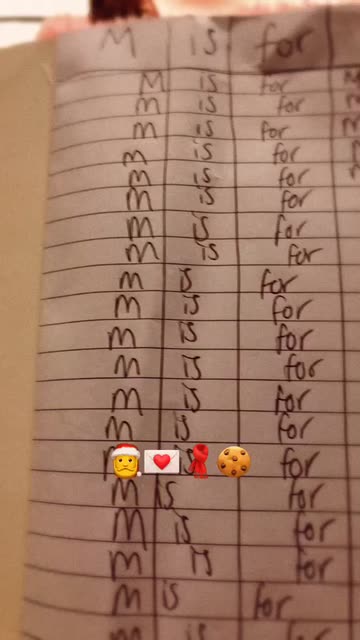 M is for
M is for
m is for
m is for
m is for
m is for
m is for
m is for
m is for
m is for
m is for
m is for
m is for
m is for
m is for
is for
m is for
m is for
m is for
m is for
m is for